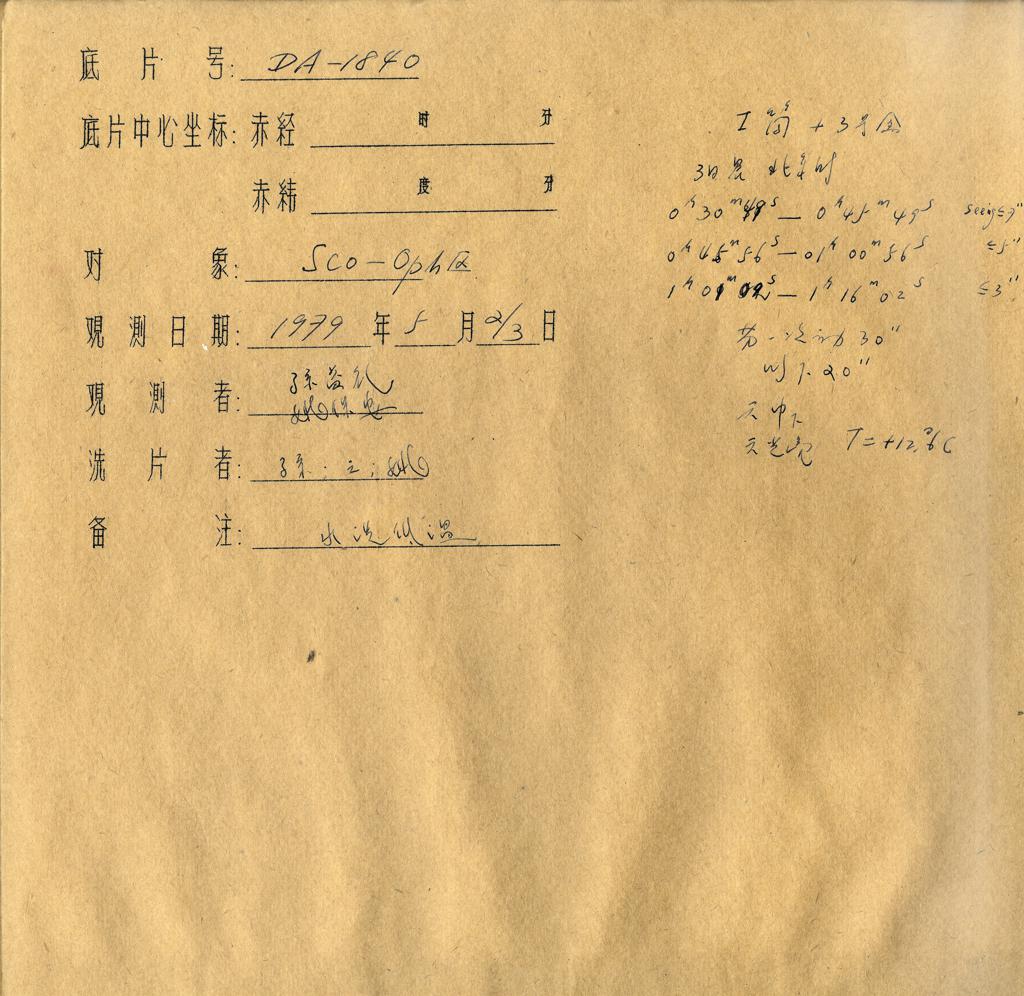 底片号: DA-1840
底片中心坐标: 赤经 时 分
赤纬 度 分
对象: Sco-Oph区
观测日期: 1979 年 5 月 2/3 日
观测者: 孙
姚保安
洗片者: 孙; 立; 姚
备注: 水洗低温
I 筒 + 3号盒
3日晨 北京时
0ʰ30ᵐ49ˢ — 0ʰ45ᵐ49ˢ seeing≤3"
0ʰ45ᵐ56ˢ — 01ʰ00ᵐ56ˢ ≤5"
1ʰ01ᵐ02ˢ — 1ʰ16ᵐ02ˢ ≤3"
第一次动30"
以下20"
天中下
天光亮 T=+12.6C